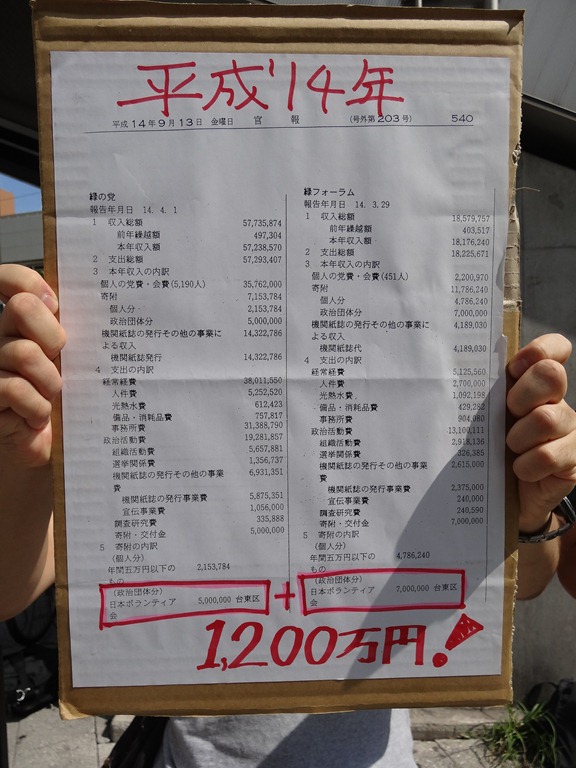 平成'14年
平成14年9月13日 金曜日 官報 (号外第203号) 540
緑の党
報告年月日 14.4.1
1 収入総額 57,735,874
前年繰越額 497,304
本年収入額 57,238,570
2 支出総額 57,293,407
3 本年収入の内訳
個人の党費・会費(5,190人) 35,762,000
寄附 7,153,784
個人分 2,153,784
政治団体分 5,000,000
機関紙誌の発行その他の事業に
よる収入 14,322,786
機関紙誌発行 14,322,786
4 支出の内訳
経常経費 38,011,550
人件費 5,252,520
光熱水費 612,423
備品・消耗品費 757,817
事務所費 31,388,790
政治活動費 19,281,857
組織活動費 5,657,881
選挙関係費 1,356,737
機関紙誌の発行その他の事業 6,931,351
費
機関紙誌の発行事業費 5,875,351
宣伝事業費 1,056,000
調査研究費 335,888
寄附・交付金 5,000,000
5 寄附の内訳
(個人分)
年間五万円以下の 2,153,784
もの
(政治団体分)
日本ボランティア 5,000,000 台東区
会
緑フォーラム
報告年月日 14.3.29
1 収入総額 18,579,757
前年繰越額 403,517
本年収入額 18,176,240
2 支出総額 18,225,671
3 本年収入の内訳
個人の党費・会費(451人) 2,200,970
寄附 11,786,240
個人分 4,786,240
政治団体分 7,000,000
機関紙誌の発行その他の事業に 4,189,030
よる収入
機関紙誌代 4,189,030
4 支出の内訳
経常経費 5,125,560
人件費 2,700,000
光熱水費 1,092,198
備品・消耗品費 429,282
事務所費 904,080
政治活動費 13,100,111
組織活動費 2,918,136
選挙関係費 326,385
機関紙誌の発行その他の事業 2,615,000
費
機関紙誌の発行事業費 2,375,000
宣伝事業費 240,000
調査研究費 240,590
寄附・交付金 7,000,000
5 寄附の内訳
(個人分)
年間五万円以下の 4,786,240
もの
(政治団体分)
日本ボランティア 7,000,000 台東区
会
+
1,200万円!